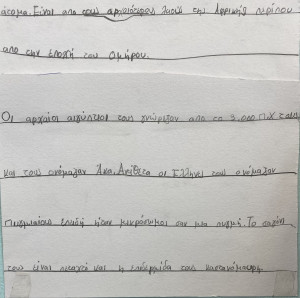 άτομα. Είναι απο τους αρχαιότερους λαούς της Αφρικής περίπου
απο την εποχή του Ομήρου.
Οι αρχαίοι αιγύπτιοι τους γνώριζαν απο το 3.000 π.Χ
και τους ονόμαζαν Ακα. Αντίθετα οι Έλληνες τους ονόμαζαν
Πυγμαίους επειδή ήταν μικρόσωμοι σαν μια πυγμή. Το
τους είναι και η επιδερμίδα τους καστανόμαυρη.